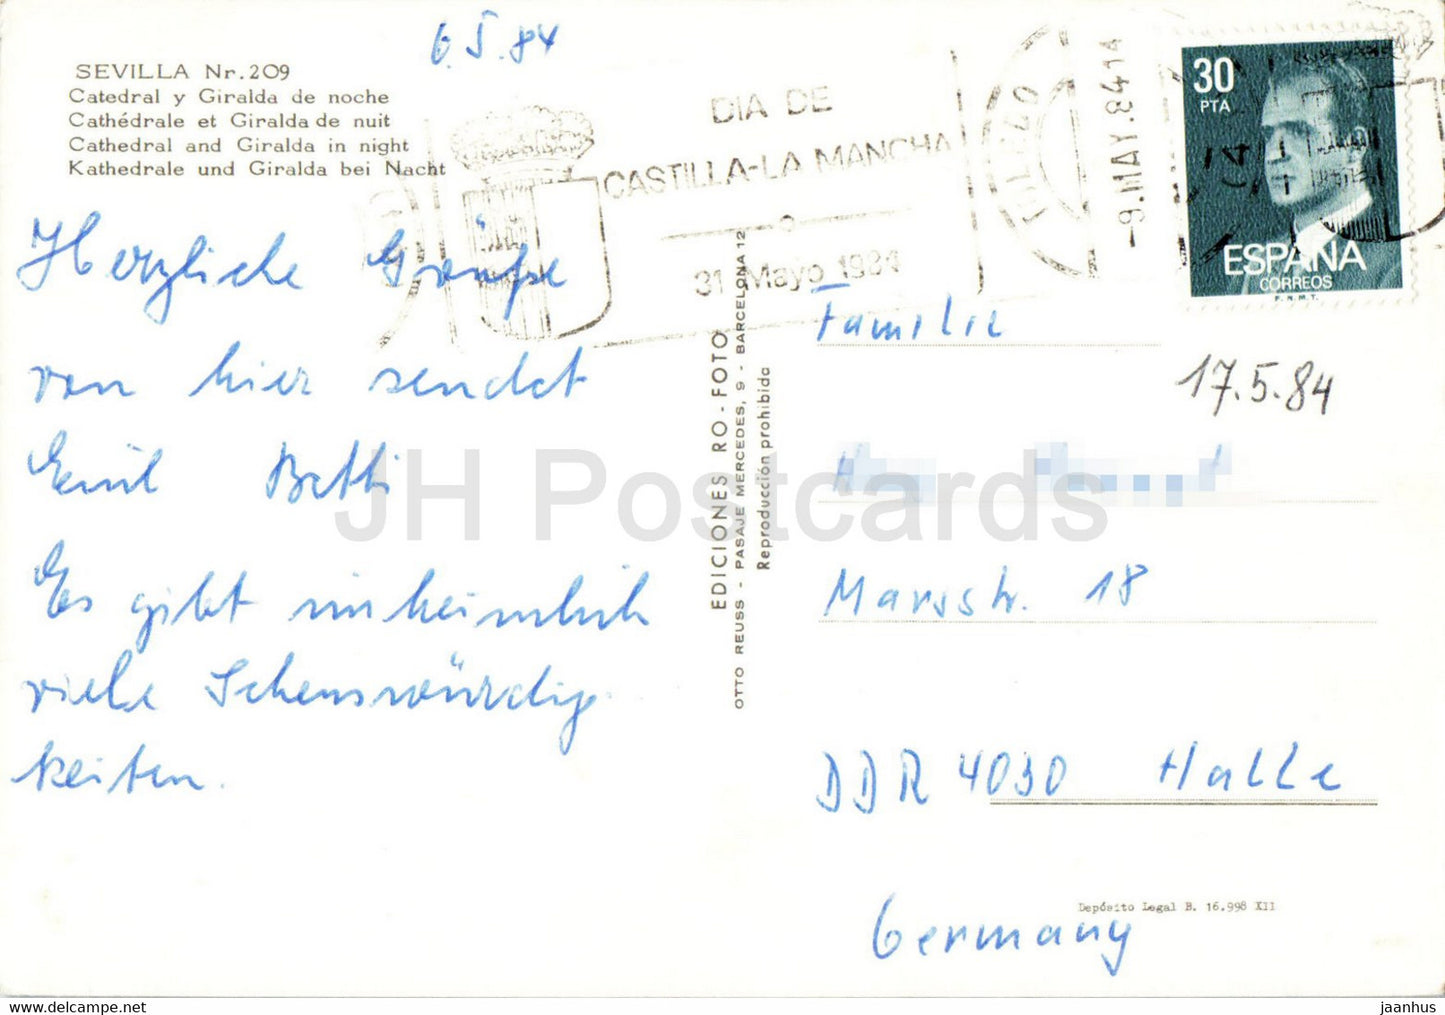 6.5.84
SEVILLA Nr. 209
Catedral y Giralda de noche
Cathédrale et Giralda de nuit
Cathedral and Giralda in night
Kathedrale und Giralda bei Nacht
Herzliche Grüße
von hier sendet
Emil Betti
Es gibt unheimlich
viele Sehenswürdig-
keiten.
DIA DE
CASTILLA-LA MANCHA
31 Mayo 1984
-9.MAY.84 14
TOLEDO
30
PTA
ESPAÑA
CORREOS
F.N.M.T.
EDICIONES RO-FOTO
OTTO REUSS - PASAJE MERCEDES, 9 - BARCELONA 12
Reproducción prohibida
Familie
17.5.84
Marsstr. 18
DDR 4030 Halle
Germany
Depósito Legal B. 16.998 XII
JH Postcards
www.jhpostcard.com
jaanhus